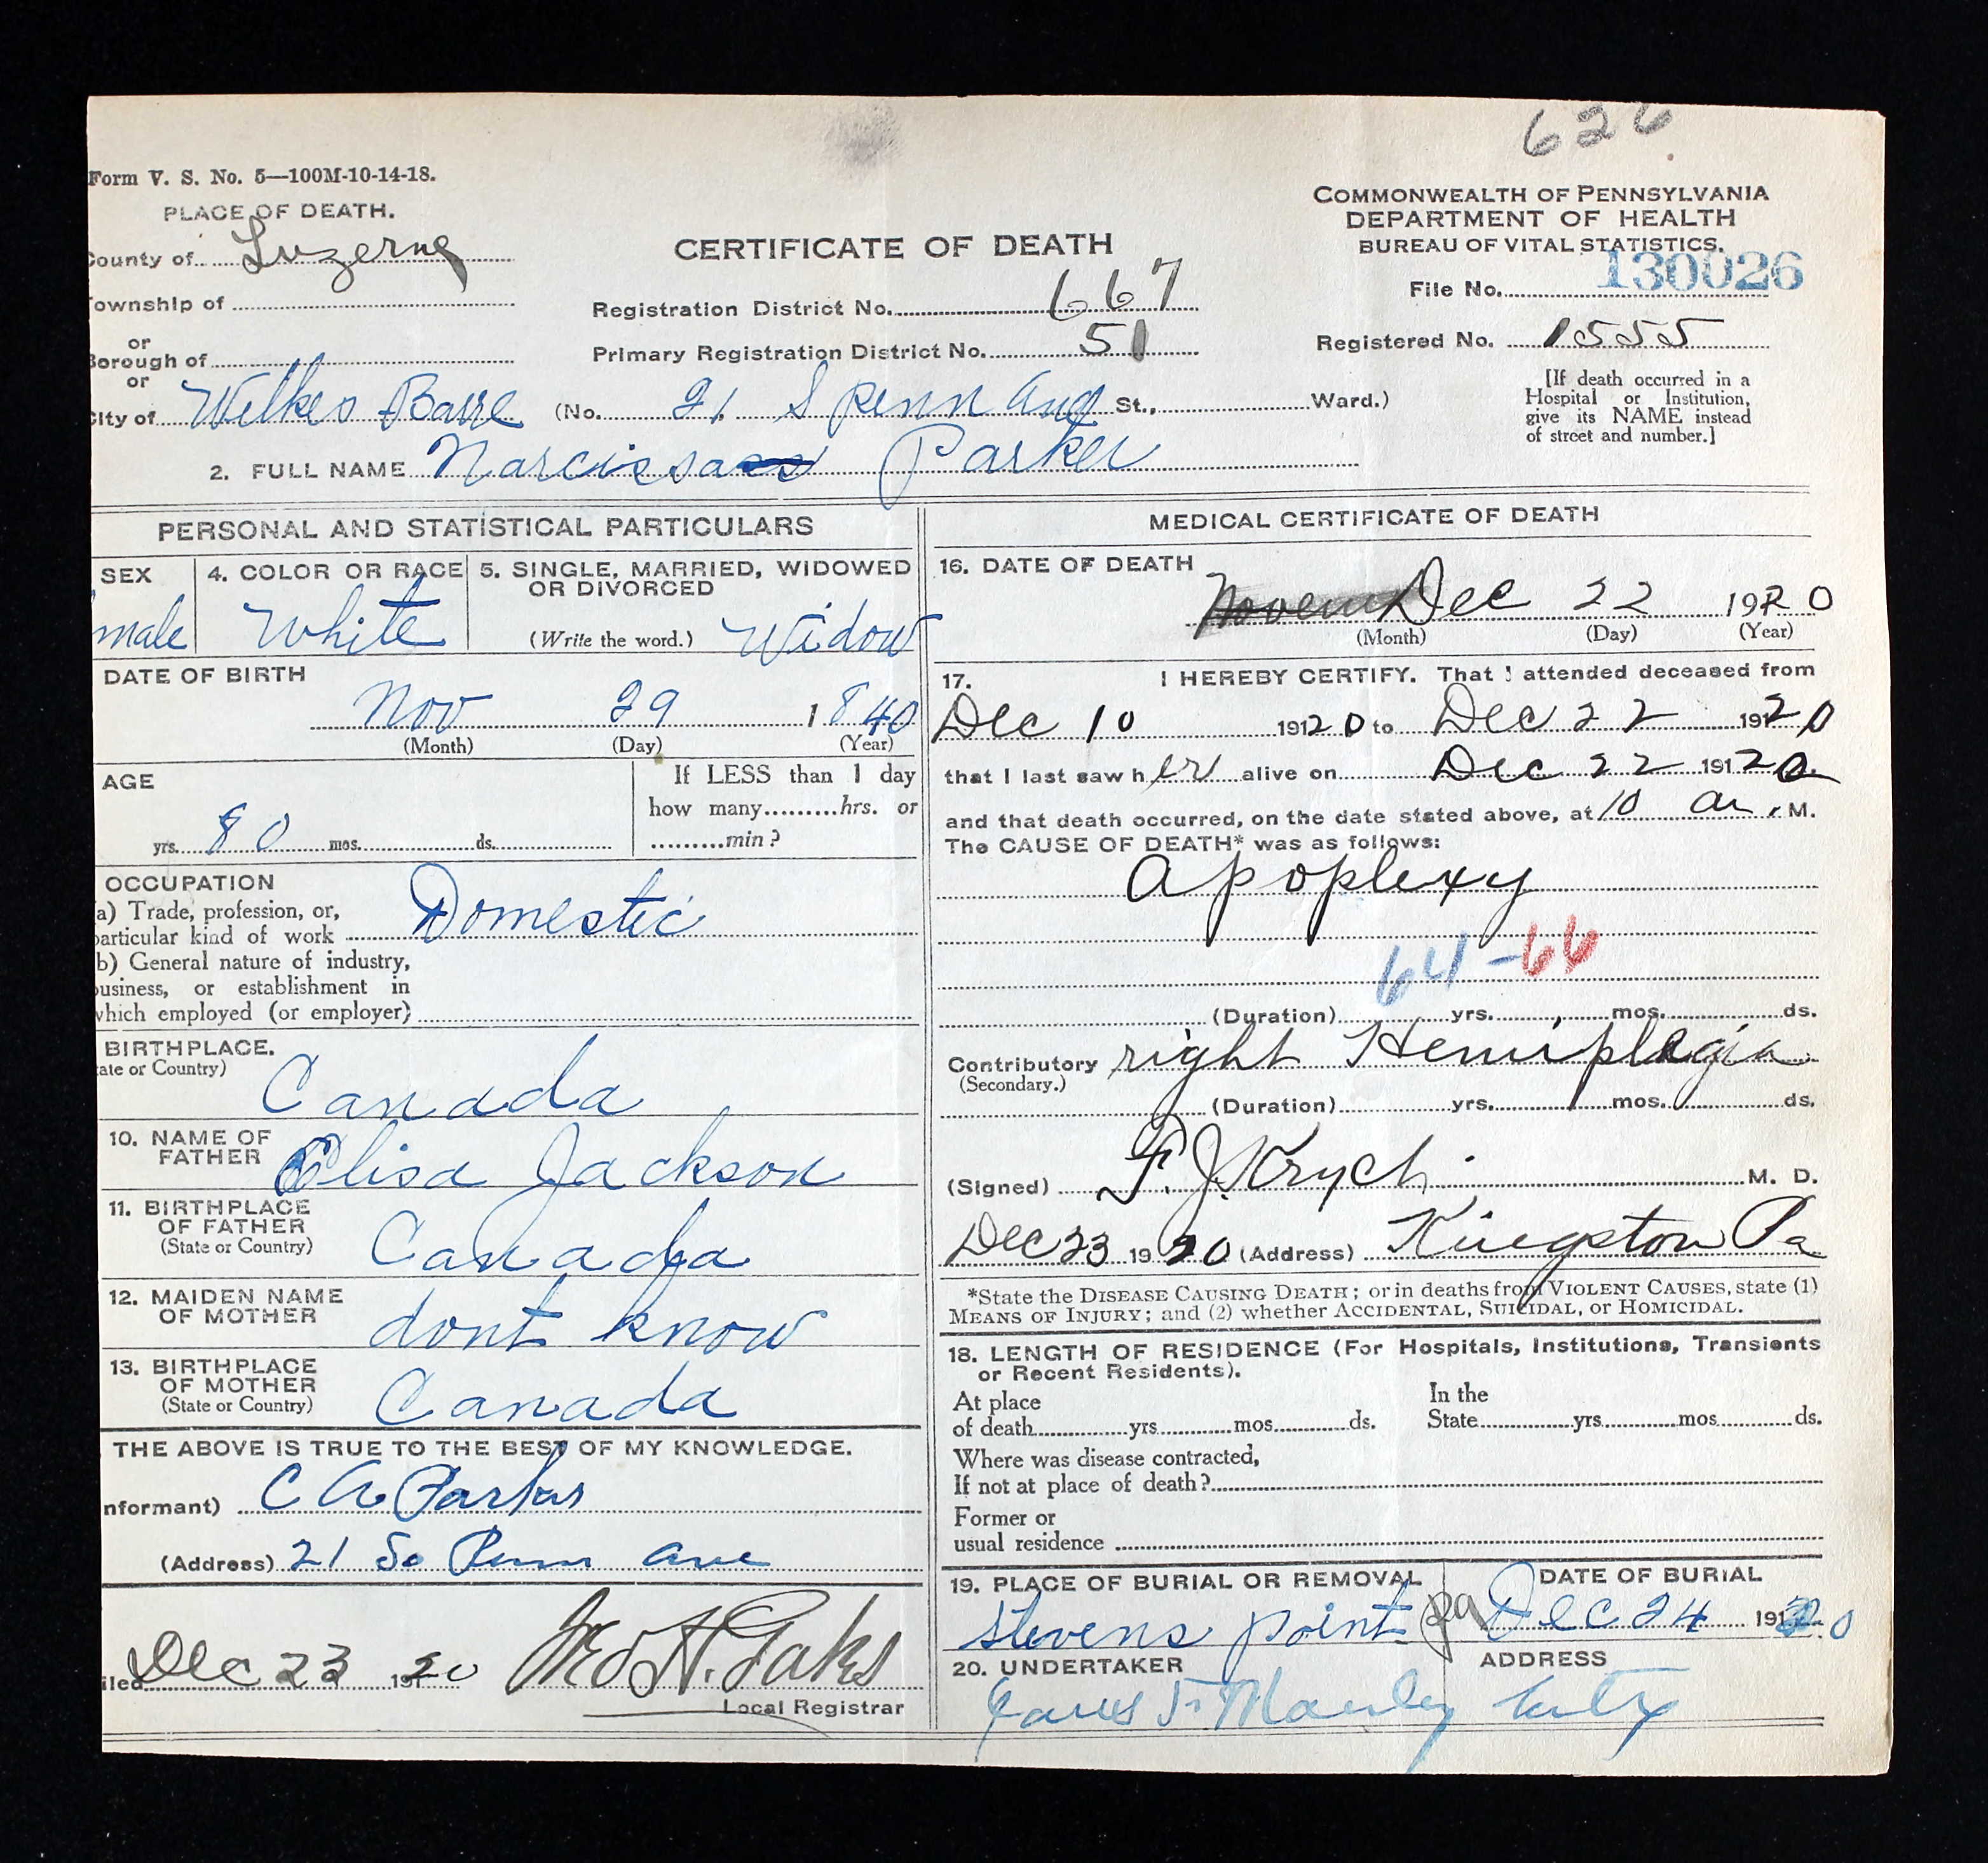 626
Form V. S. No. 5—100M-10-14-18.
PLACE OF DEATH.
County of Luzerne
Township of
or
Borough of
or
City of Wilkes Barre (No. 21 S Penn Ave St., Ward.)
CERTIFICATE OF DEATH
Registration District No. 667
Primary Registration District No. 51
COMMONWEALTH OF PENNSYLVANIA
DEPARTMENT OF HEALTH
BUREAU OF VITAL STATISTICS.
File No. 130026
Registered No. 1555
[If death occurred in a
Hospital or Institution,
give its NAME instead
of street and number.]
2. FULL NAME Narcissa Parker
PERSONAL AND STATISTICAL PARTICULARS
SEX
male
4. COLOR OR RACE
White
5. SINGLE, MARRIED, WIDOWED
OR DIVORCED
(Write the word.) Widow
DATE OF BIRTH
Nov 29 1840
(Month) (Day) (Year)
AGE
yrs. 80 mos. ds.
If LESS than 1 day
how many hrs. or
min?
OCCUPATION
a) Trade, profession, or,
particular kind of work Domestic
b) General nature of industry,
business, or establishment in
which employed (or employer)
BIRTHPLACE.
ate or Country)
Canada
10. NAME OF
FATHER Elisa Jackson
11. BIRTHPLACE
OF FATHER
(State or Country) Canada
12. MAIDEN NAME
OF MOTHER dont know
13. BIRTHPLACE
OF MOTHER
(State or Country) Canada
THE ABOVE IS TRUE TO THE BEST OF MY KNOWLEDGE.
nformant) C A Parker
(Address) 21 So Penn ave
iled Dec 23 1920
Local Registrar
MEDICAL CERTIFICATE OF DEATH
16. DATE OF DEATH
Dec 22 1920
(Month) (Day) (Year)
17. I HEREBY CERTIFY. That I attended deceased from
Dec 10 19120 to Dec 22 1920
that I last saw her alive on Dec 22 19120
and that death occurred, on the date stated above, at 10 a.M.
The CAUSE OF DEATH* was as follows:
Apoplexy
64-66
(Duration) yrs. mos. ds.
Contributory right Hemiplegia
(Secondary.)
(Duration) yrs. mos. ds.
(Signed) F. J. Krych M. D.
Dec 23 1920 (Address) Kingston Pa
*State the DISEASE CAUSING DEATH; or in deaths from VIOLENT CAUSES, state (1)
MEANS OF INJURY; and (2) whether ACCIDENTAL, SUICIDAL, or HOMICIDAL.
18. LENGTH OF RESIDENCE (For Hospitals, Institutions, Transients
or Recent Residents).
At place
of death yrs. mos. ds.
In the
State yrs. mos. ds.
Where was disease contracted,
If not at place of death?
Former or
usual residence
19. PLACE OF BURIAL OR REMOVAL
Stevens point Pa
DATE OF BURIAL
Dec 24 1920
20. UNDERTAKER
F. Manley
ADDRESS
City